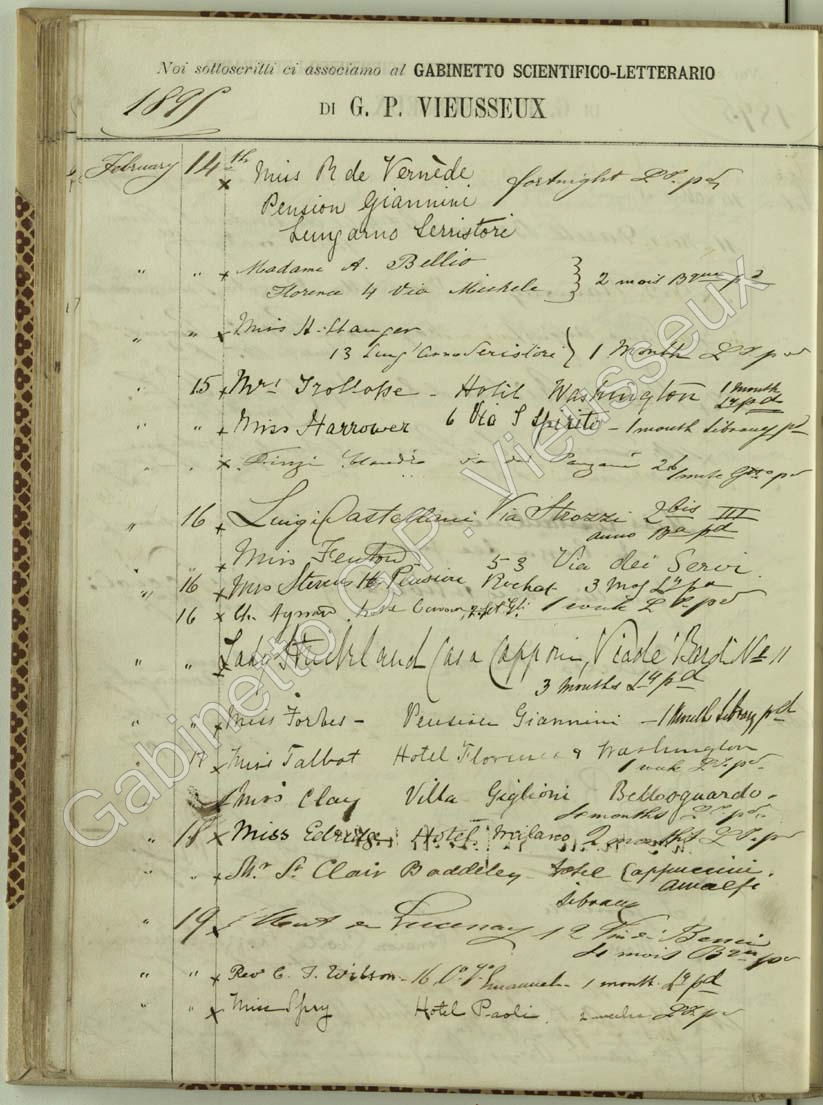 Noi sottoscritti ci associamo al GABINETTO SCIENTIFICO-LETTERARIO
1895
DI G. P. VIEUSSEUX
February 14th x Miss R de Vernède fortnight pd
Pension Giannini
Lungarno Serristori
" " x Madame A. Bellio
Florence 4 Via Michele } 2 mois pd
" " x Miss H. Stanger
13 Lung'Arno Seristori } 1 Month
" 15 x Mrs Trollope - Hotel Washington 1 month
Ly pd
" " x Miss Harrower 6 Via S Spirito - 1 month Library pd
" " x Via dei Panzani
" 16 x Luigi Castellani Via Strozzi 2 bis III
anno pd
" Miss Fenton 53 Via dei Servi
" 16 x Mrs Stevens Pension Rochat 3 mos Ly
16 x 1 week
" " x Lady Casa Capponi, Via de' Bardi No 11
3 months Ly pd
" " x Miss Forbes - Pension Giannini - 1 Month Library pd
" 17 x Miss Talbot Hotel Florence & Washington
1 week
" Miss Clay Villa Giglioni Bellosguardo -
months
" 18 x Miss Hotel Milano 2 months
" " x Mr St Clair Baddeley Hotel Cappuccini.
Amalfi
Library
" 19 x de Lucenay 12 Via de' Benci
mois
" " x Rev C. F. Wilson - 16 Emanuel - 1 month Ly pd
" " x Miss Spry Hotel Paoli. 2 weeks
Gabinetto G.P. Vieusseux